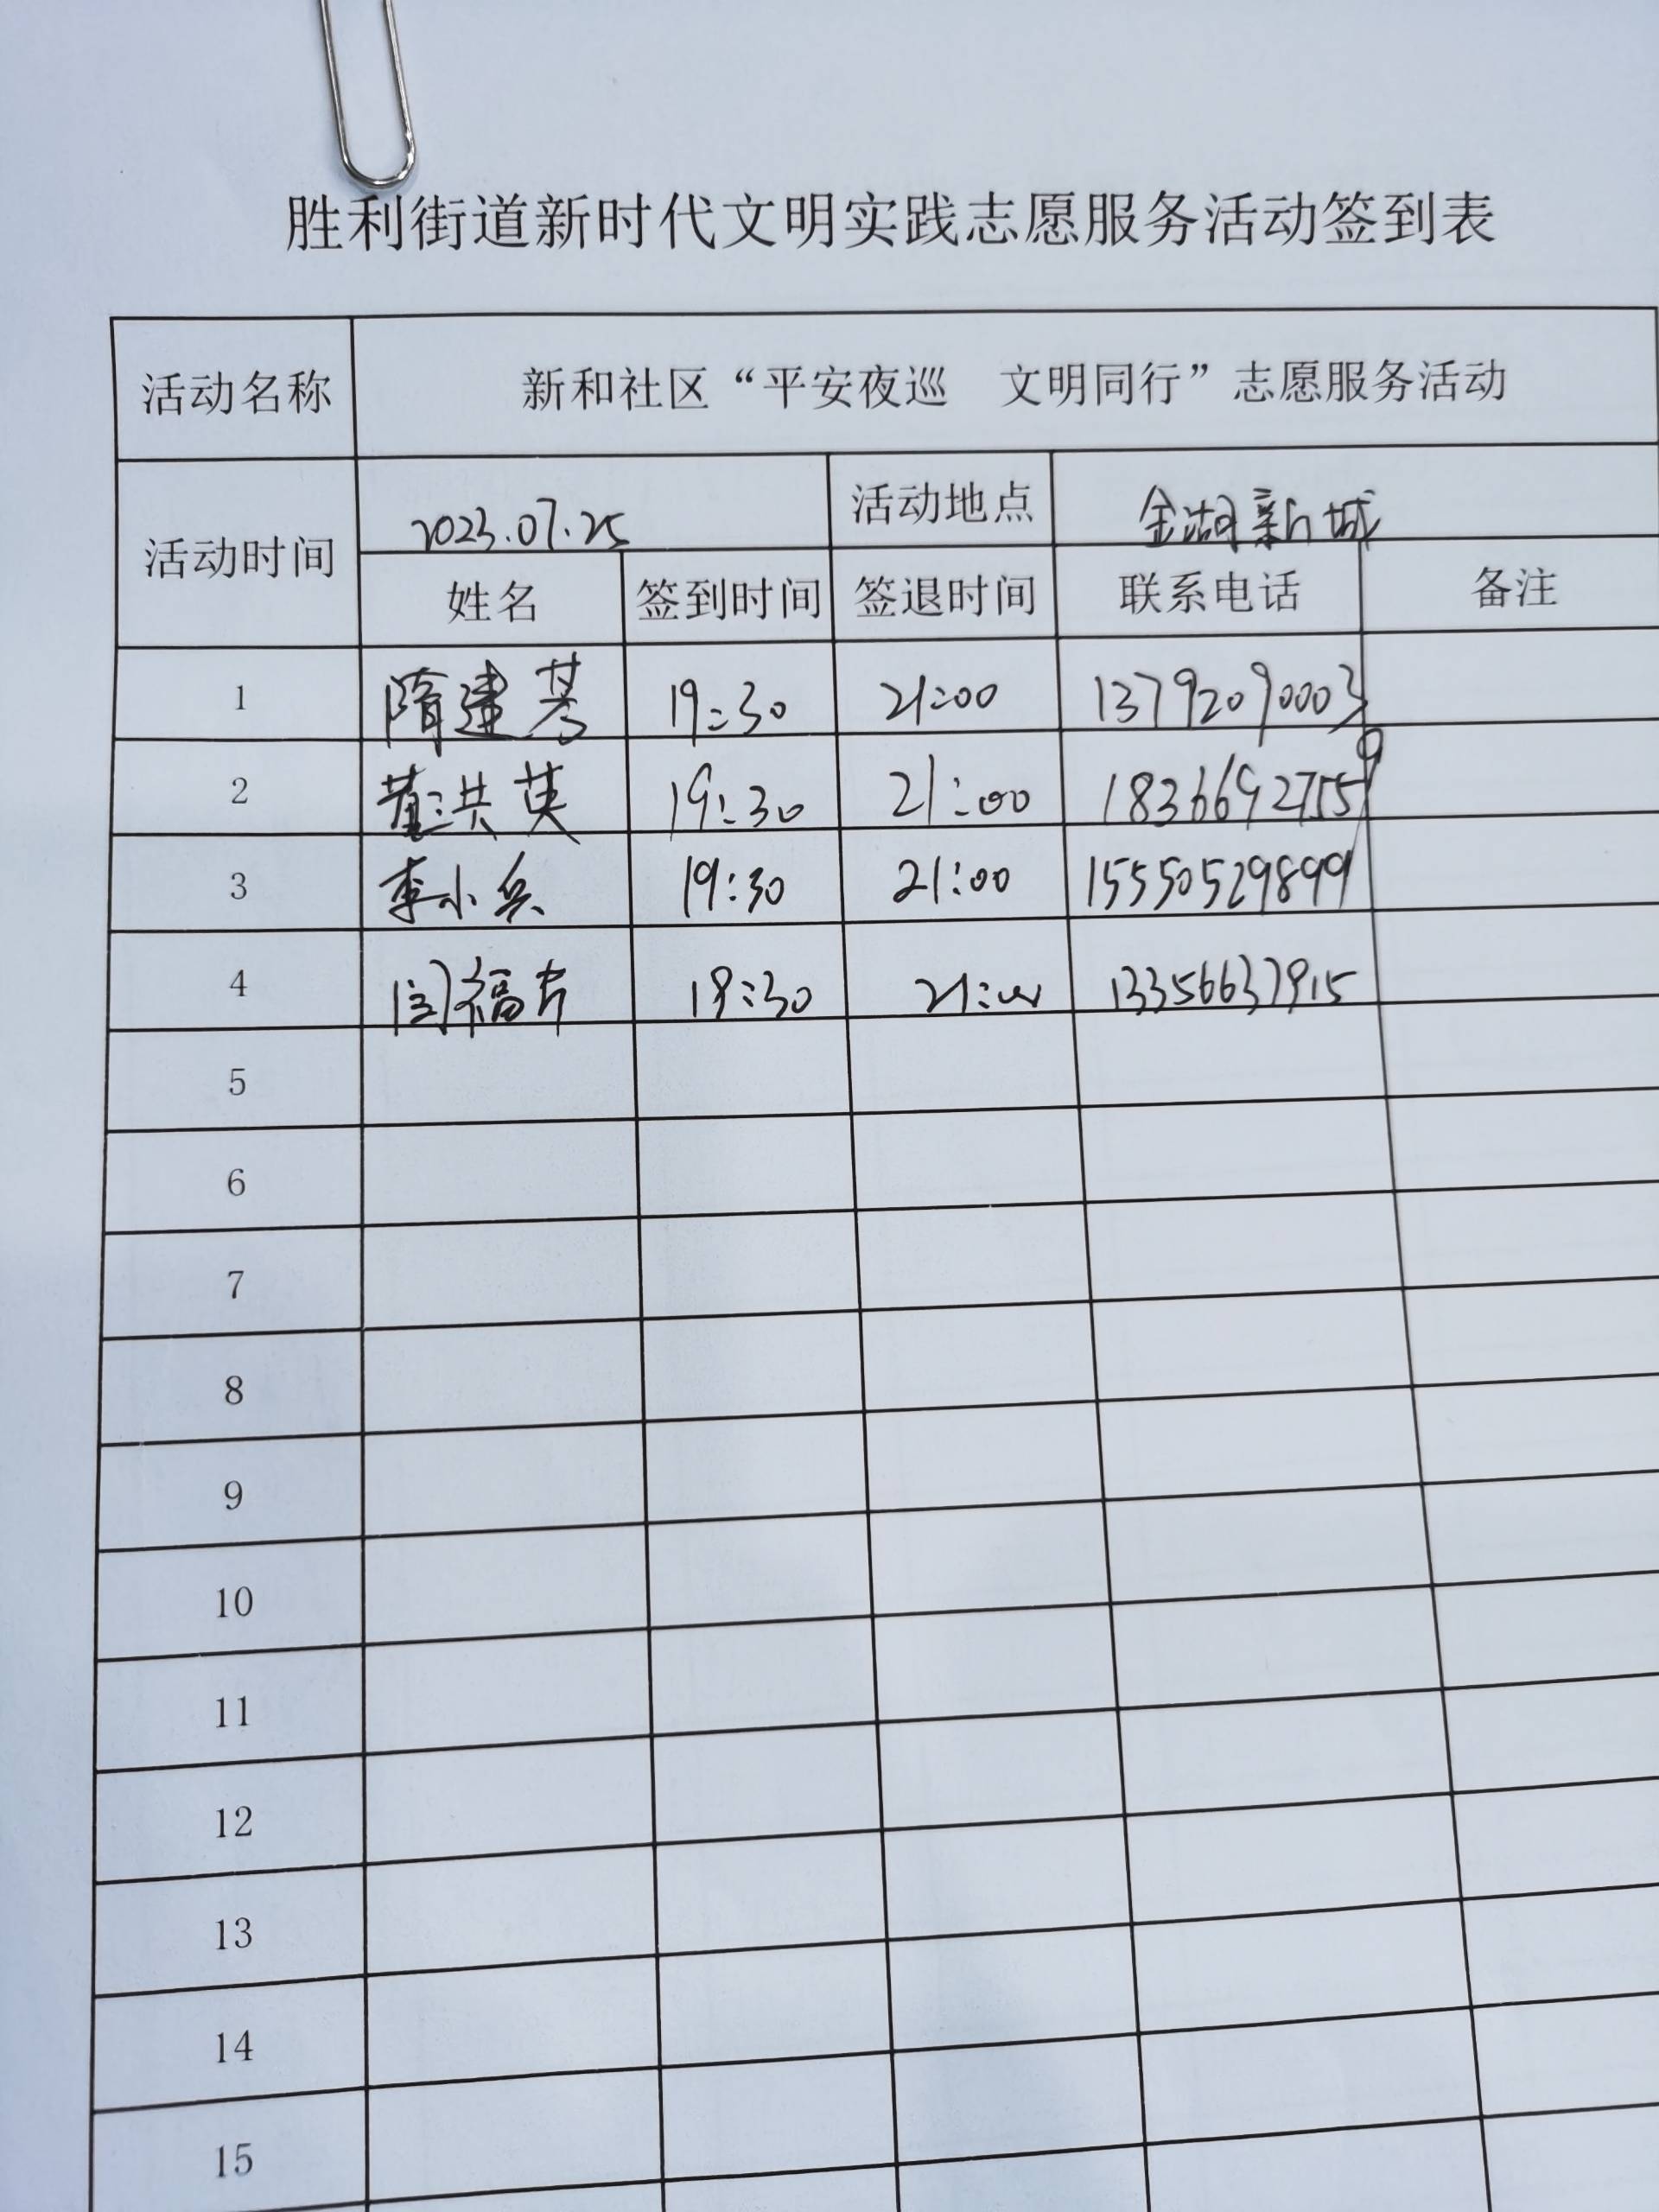 胜利街道新时代文明实践志愿服务活动签到表
活动名称 新和社区“平安夜巡 文明同行”志愿服务活动
活动时间 2023.07.25 活动地点 金湖新城
姓名 签到时间 签退时间 联系电话 备注
1 隋建芩 19:30 21:00 13792090003
2 董洪英 19:30 21:00 18366927559
3 李小兵 19:30 21:00 15550529899
4 闫福芹 19:30 21:00 13356637915
5
6
7
8
9
10
11
12
13
14
15